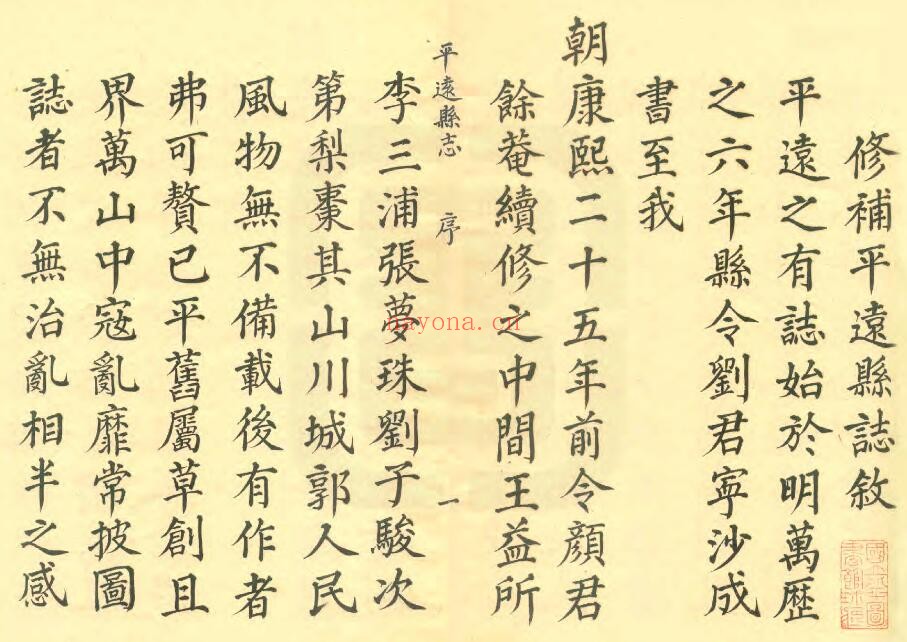 修補平遠縣誌敘
平遠之有誌始於明萬歷
之六年縣令劉君寧沙成
書至我
朝康熙二十五年前令顏君
餘菴續修之中間王益所
平遠縣志 序 一
李三浦張夢珠劉子駿次
第梨棗其山川城郭人民
風物無不備載後有作者
弗可贅已平舊屬草創且
界萬山中寇亂靡常披圖
誌者不無治亂相半之感
nayona.cn